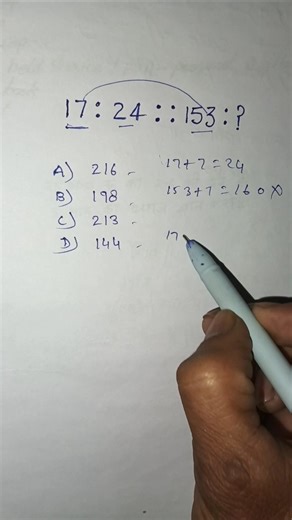 17 : 24 :: 153 : ?
A) 216 - 17+7 = 24
B) 198 153+7 = 160 X
C) 213 -
D) 144 - 17